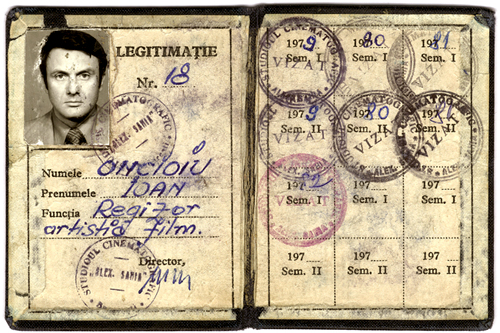 LEGITIMAȚIE
Nr. 18
Numele ONCIOIU
Prenumele IOAN
Funcția Regizor
artistic film.
Director,
STUDIOUL CINEMATOGRAFIC
„ALEX. SAHIA"
1979 1980 1981
Sem. I Sem. I Sem. I
VIZAT
1979 1980 1981
Sem. II Sem. II Sem. II
VIZAT
1982 197 197
Sem. I Sem. I Sem. I
VIZAT
197 197 197
Sem. II Sem. II Sem. II